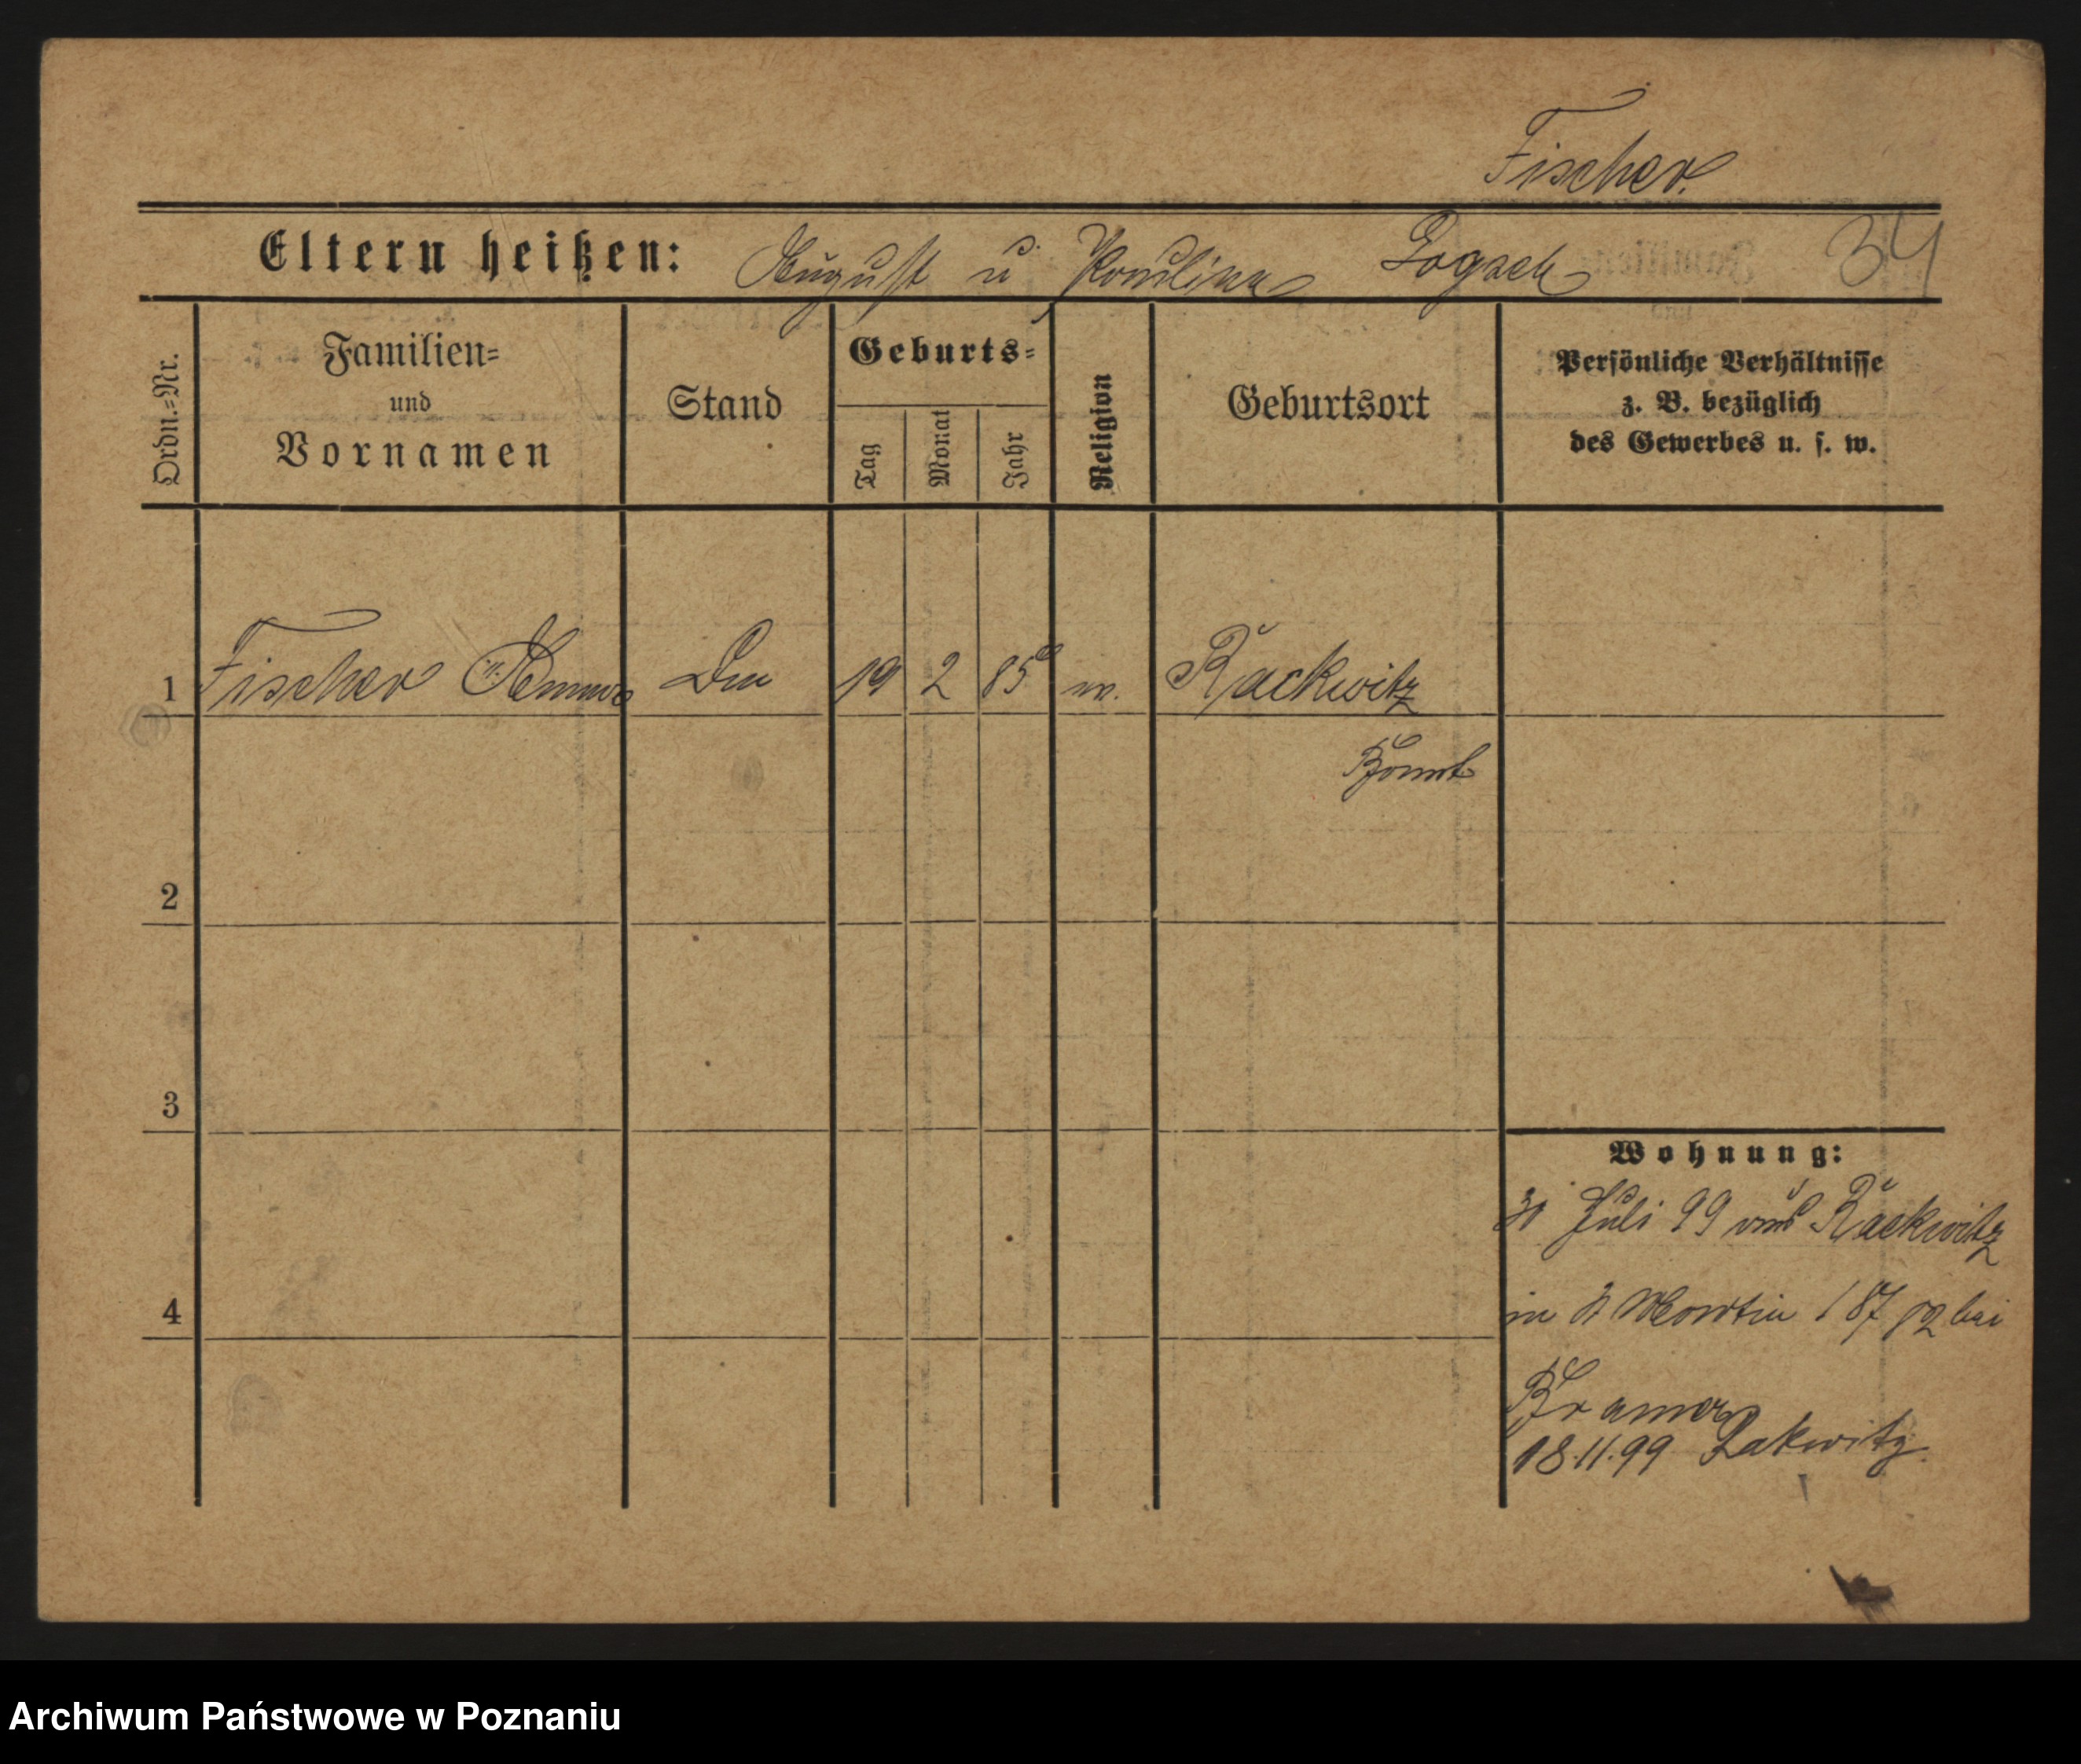 Fischer.
Eltern heißen: August u Pauline Logsch 34
Ordn.=Nr.
Familien=
und
Vornamen
Stand
Geburts=
Tag
Monat
Jahr
Religion
Geburtsort
Persönliche Verhältnisse
z. B. bezüglich
des Gewerbes u. s. w.
1 Fischer Anna 19 2 85 Rackwitz
Bomst
2
3
4
Wohnung:
Juli 99 aus Rackwitz
in St Martin bei
Bramer
18.11.99 Rakwitz
Archiwum Państwowe w Poznaniu